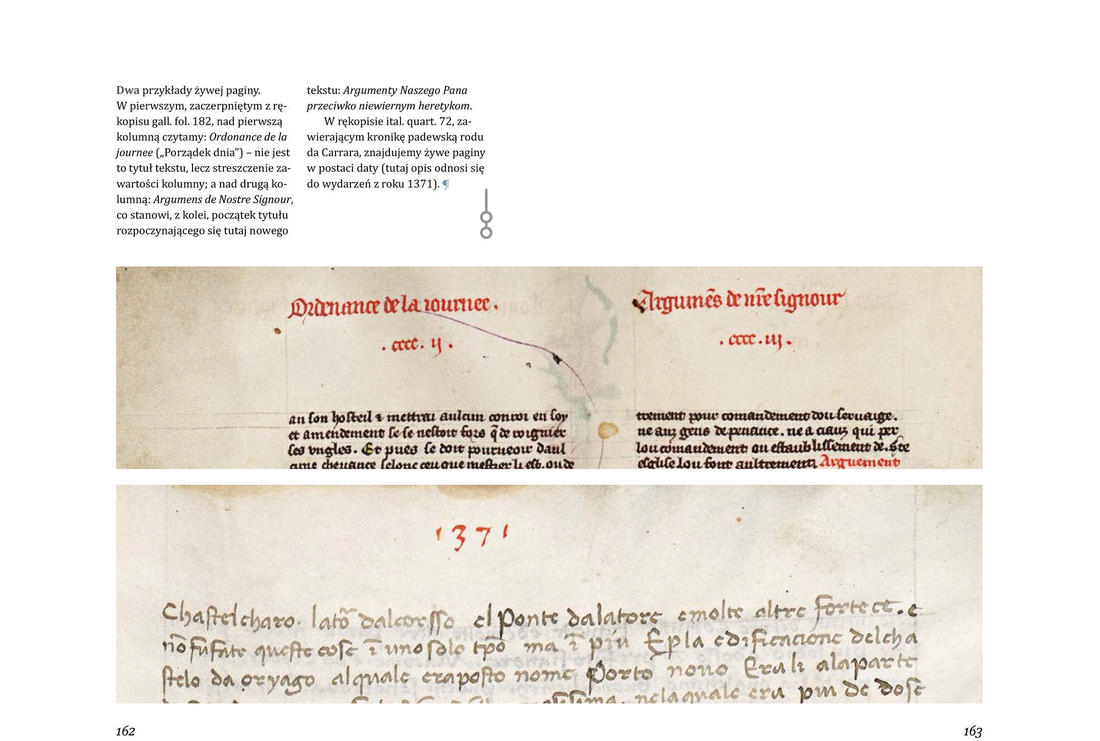 Dwa przykłady żywej paginy.
W pierwszym, zaczerpniętym z rę-
kopisu gall. fol. 182, nad pierwszą
kolumną czytamy: Ordonance de la
journee („Porządek dnia”) – nie jest
to tytuł tekstu, lecz streszczenie za-
wartości kolumny; a nad drugą ko-
lumną: Argumens de Nostre Signour,
co stanowi, z kolei, początek tytułu
rozpoczynającego się tutaj nowego
tekstu: Argumenty Naszego Pana
przeciwko niewiernym heretykom.
W rękopisie ital. quart. 72, za-
wierającym kronikę padewską rodu
da Carrara, znajdujemy żywe paginy
w postaci daty (tutaj opis odnosi się
do wydarzeń z roku 1371). ¶
Ordenance de la iournee.
. cccc . ij .
an son hosteil & mettrai aulcun conroi en soy
et amendement se le nestoit fors q̃ de roignier
ses ungles. Et pues se doit pourveoir daul
Argumẽs de nr̃e signour
. cccc . iij .
trement pour comandement dou servaige.
ne aux gens de penance. ne a ciauz qui per
lou comandement ou establissement de. ste
esglise lou font aultrement. Arguement
1371
Chastelcharo. lato dalcorsso el Ponte dalatore e molte altre fortece. e
nõ fu fate queste cose ĩ uno solo tpõ ma ĩ piu E p la edificacione delcha
stelo da oryago alquale era posto nome Porto novo Era li ala parte
nela quale era piu de dose
162
163